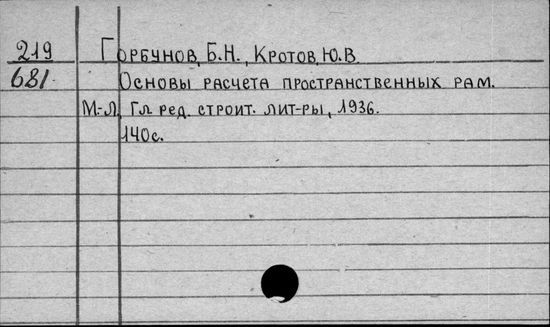 219 Горбунов, Б.Н., Кротов, Ю.В
681. Основы расчета пространственных рам.
М.-Л, Гл. ред. строит. лит-ры, 1936.
140с.